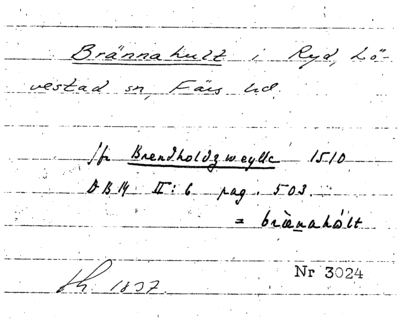 Brännahult i Ryd, Lö-
vestad sn, Färs hd.
jfr Brendholdzweylle 1510
DBM II:6 pag. 503.
= bræ̀nahólt
1837.
Nr 3024